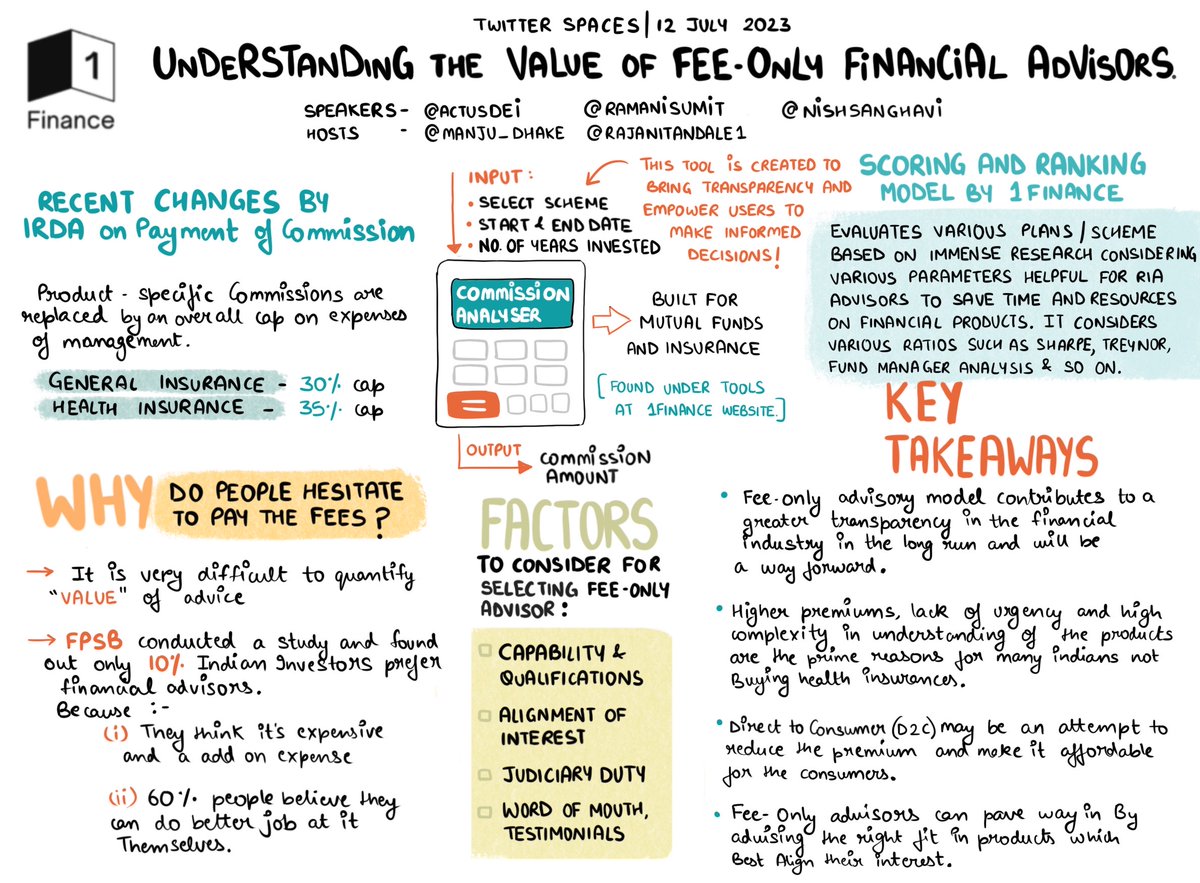 1
Finance
TWITTER SPACES | 12 JULY 2023
UNDERSTANDING THE VALUE OF FEE-ONLY FINANCIAL ADVISORS.
SPEAKERS - @ACTUSDEI @RAMANISUMIT @NISHSANGHAVI
HOSTS - @MANJU_DHAKE @RAJANITANDALE1
RECENT CHANGES BY
IRDA on Payment of Commission
Product - specific Commissions are
replaced by an overall cap on expenses
of management.
GENERAL INSURANCE - 30% cap
HEALTH INSURANCE - 35% cap
INPUT:
• SELECT SCHEME
• START & END DATE
• NO. OF YEARS INVESTED
THIS TOOL IS CREATED TO
BRING TRANSPARENCY AND
EMPOWER USERS TO
MAKE INFORMED
DECISIONS!
COMMISSION
ANALYSER
BUILT FOR
MUTUAL FUNDS
AND INSURANCE
[FOUND UNDER TOOLS
AT 1FINANCE WEBSITE.]
OUTPUT
COMMISSION
AMOUNT
SCORING AND RANKING
MODEL BY 1FINANCE
EVALUATES VARIOUS PLANS / SCHEME
BASED ON IMMENSE RESEARCH CONSIDERING
VARIOUS PARAMETERS HELPFUL FOR RIA
ADVISORS TO SAVE TIME AND RESOURCES
ON FINANCIAL PRODUCTS. IT CONSIDERS
VARIOUS RATIOS SUCH AS SHARPE, TREYNOR,
FUND MANAGER ANALYSIS & SO ON.
WHY DO PEOPLE HESITATE
TO PAY THE FEES?
→ It is very difficult to quantify
"VALUE" of advice
→ FPSB conducted a study and found
out only 10% Indian Investors prefer
financial advisors.
Because :-
(i) They think it's expensive
and a add on expense
(ii) 60% people believe they
can do better job at it
Themselves.
FACTORS
TO CONSIDER FOR
SELECTING FEE-ONLY
ADVISOR:
CAPABILITY &
QUALIFICATIONS
ALIGNMENT OF
INTEREST
JUDICIARY DUTY
WORD OF MOUTH,
TESTIMONIALS
KEY
TAKEAWAYS
• Fee-only advisory model contributes to a
greater transparency in the financial
industry in the long run and will be
a way forward.
• Higher premiums, lack of urgency and high
complexity in understanding of the products
are the prime reasons for many indians not
Buying health insurances.
• Direct to Consumer (D2C) may be an attempt to
reduce the premium and make it affordable
for the consumers.
• Fee-Only advisors can pave way in By
advising the right fit in products which
Best Align their interest.